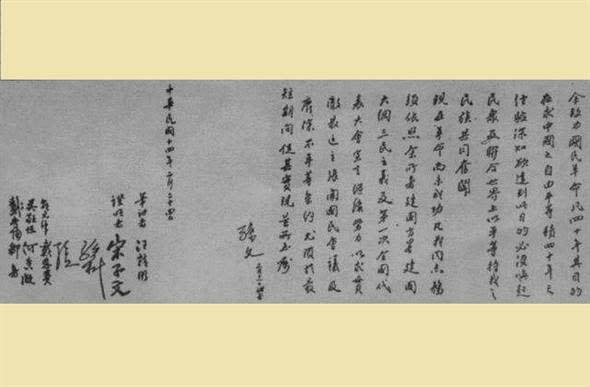 余致力國民革命凡四十年其目的
在求中國之自由平等積四十年之
經驗深知欲達到此目的必須喚起
民衆及聯合世界上以平等待我之
民族共同奮鬬
現在革命尚未成功凡我同志務
須依照余所著建國方畧建國
大綱三民主義及第一次全國代
表大會宣言繼續努力以求貫
徹最近主張開國民會議及
廢除不平等條約尤須於最
短期間促其實現是所至囑
孫文
中華民國十四年二月二十四日
筆記者 汪精衛
證明者 宋子文
孫科
戴恩賽
吳敬恆 何香凝
鄒魯